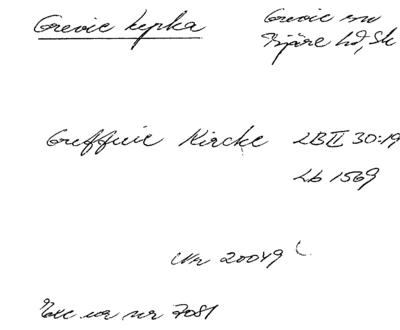 Grevie kyrka
Grevie sn
Bjäre hd, Sk
Greffuie Kircke LB II 30:19
Lb 1569
Nr 20049
Exc ur nr 7081